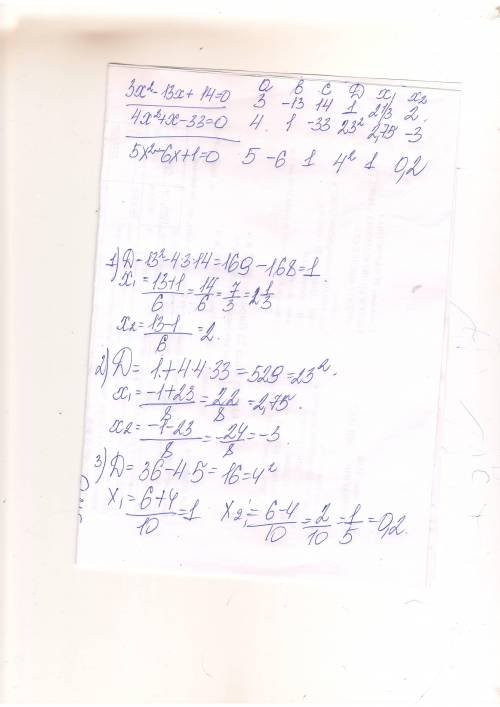 a b c D x₁ x₂
3x²-13x+14=0 3 -13 14 1 2 1/3 2.
4x²+x-33=0 4. 1 -33 23² 2,75 -3
5x²-6x+1=0 5 -6 1 4² 1 0,2
1) D=13²-4·3·14=169-168=1.
x₁=(13+1)/6=14/6=7/3=2 1/3
x₂=(13-1)/6=2.
2) D=1+4·4·33=529=23².
x₁=(-1+23)/8=22/8=2,75.
x₂=(-1-23)/8=-24/8=-3.
3) D=36-4·5=16=4²
x₁=(6+4)/10=1 x₂=(6-4)/10=2/10=1/5=0,2.